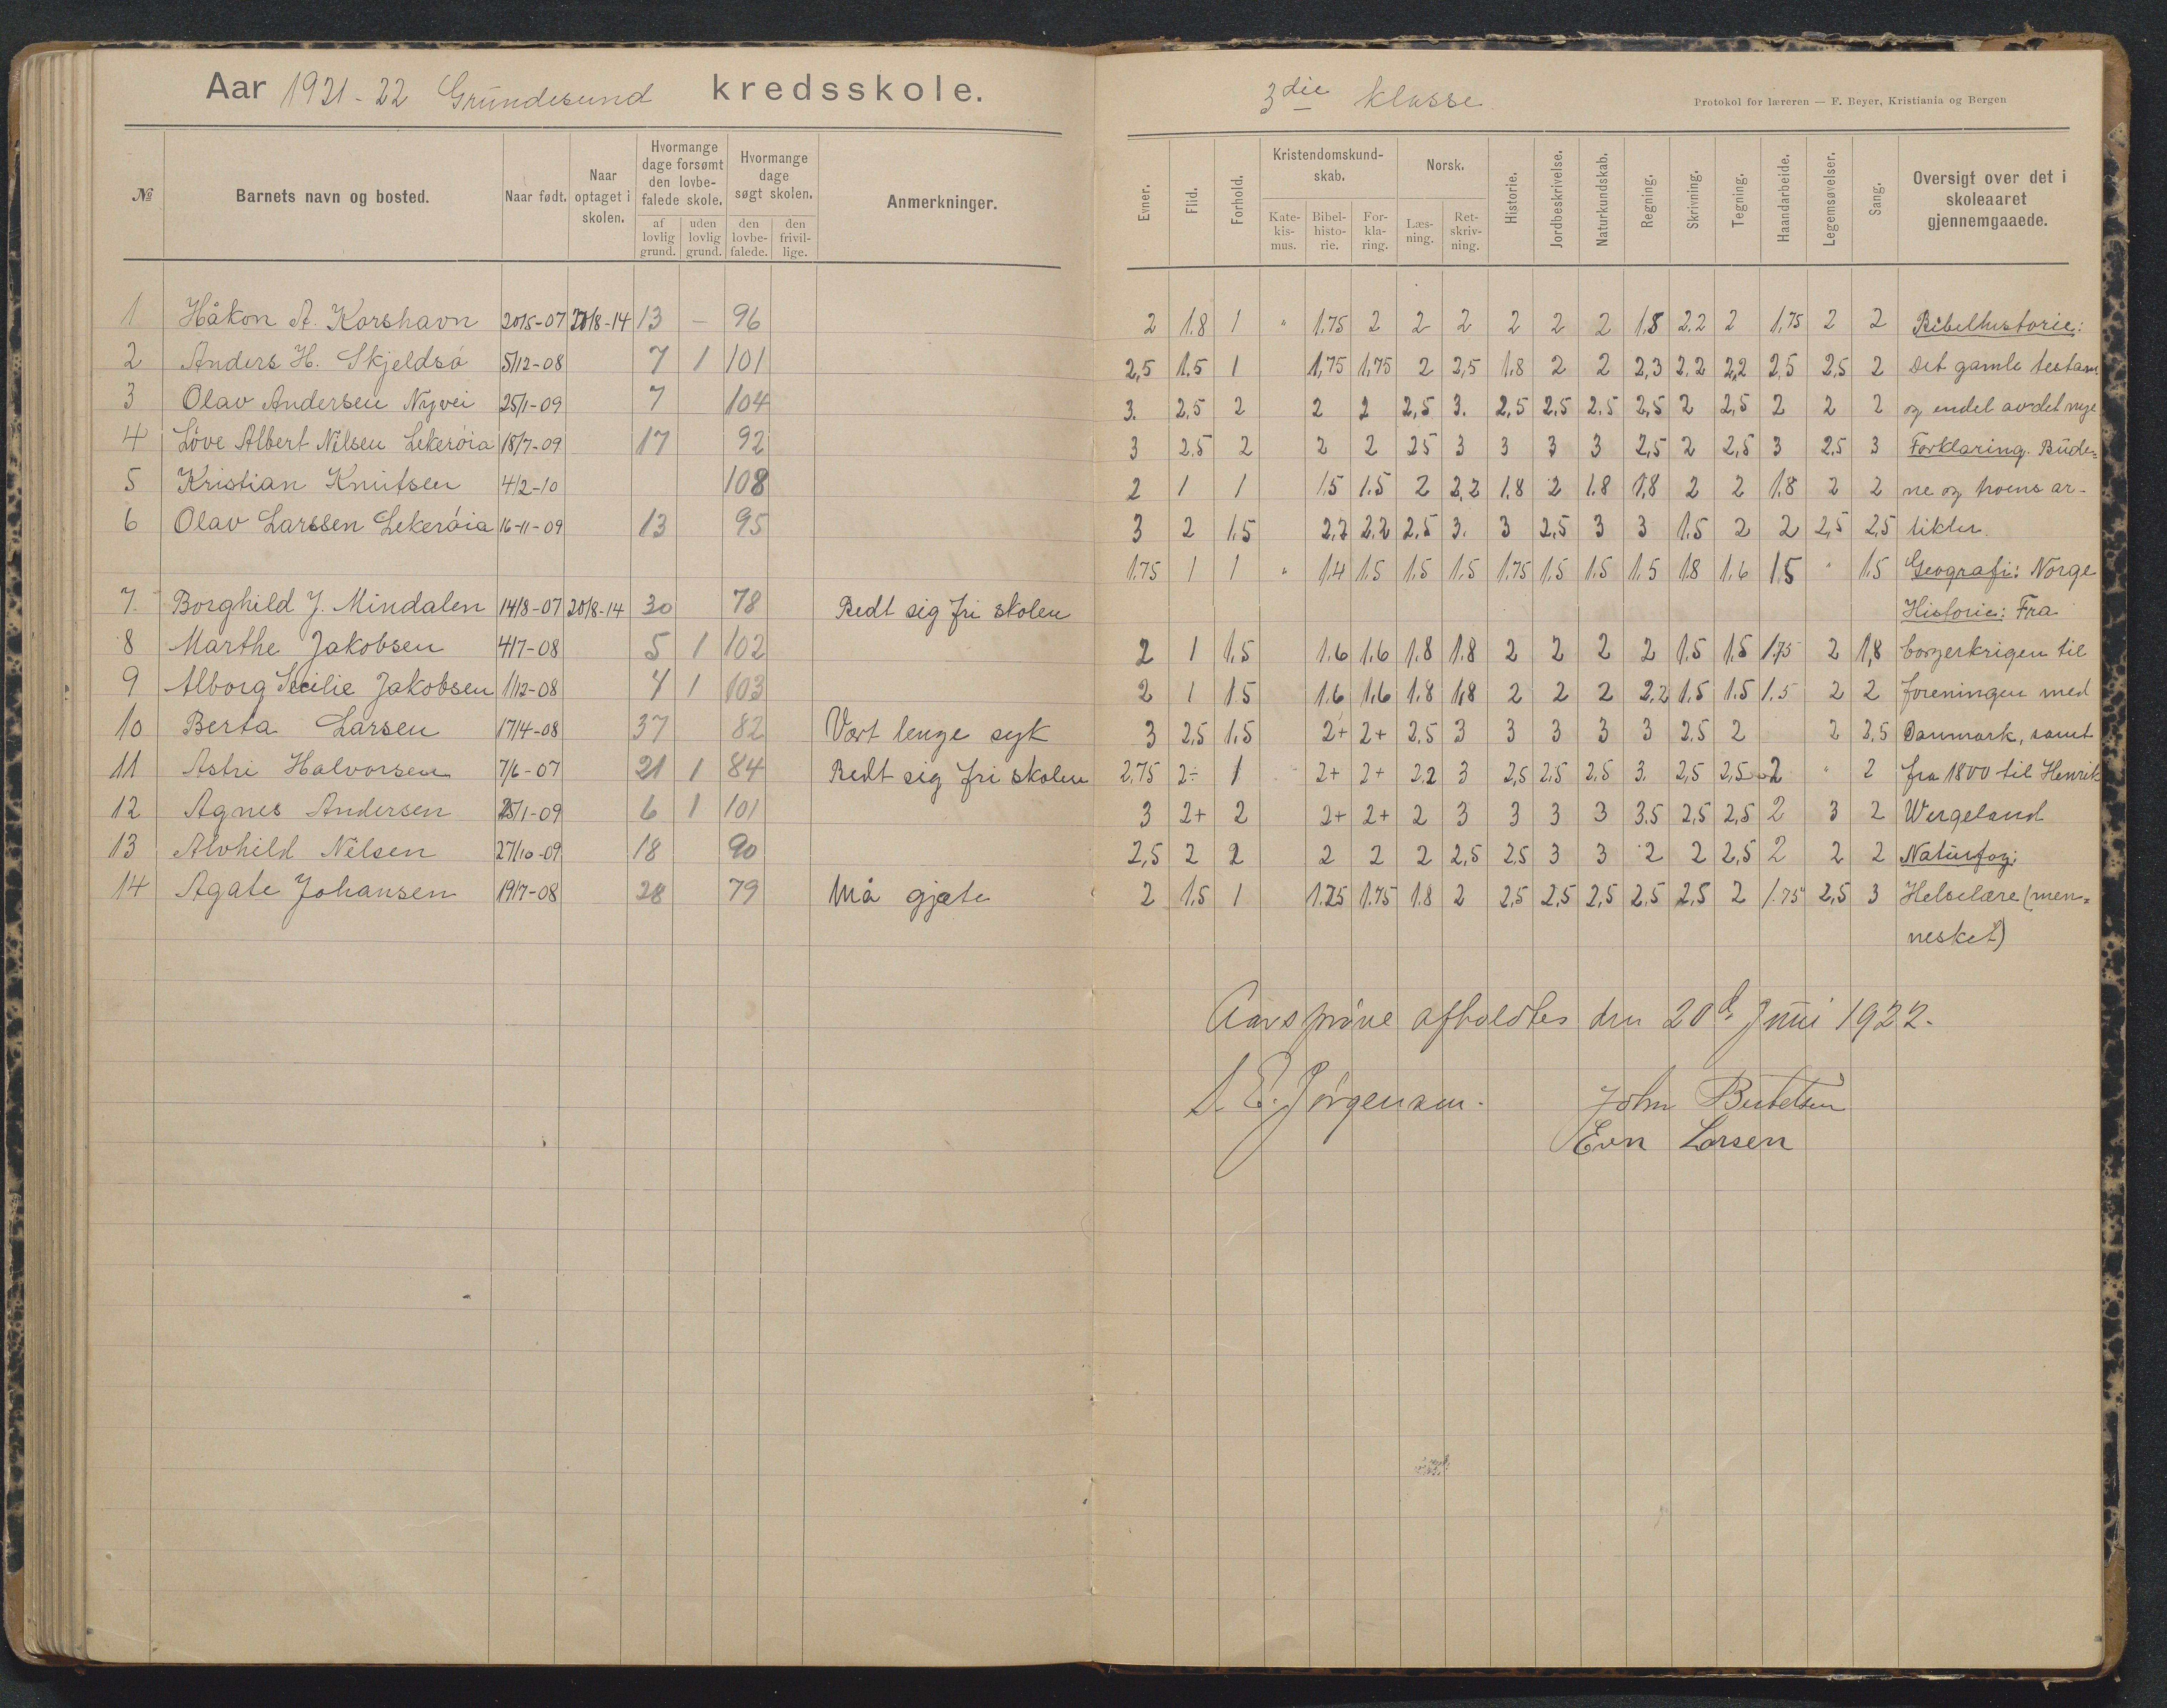 Aar 1921-22 Grundesund kredsskole.
3die klasse
Protokol for læreren — F. Beyer, Kristiania og Bergen
№ Barnets navn og bosted. Naar født. Naar optaget i skolen. Hvormange dage forsømt den lovbefalede skole. af lovlig grund. uden lovlig grund. Hvormange dage søgt skolen. den lovbefalede. den frivillige. Anmerkninger.
Evner. Flid. Forhold. Kristendomskundskab. Katekismus. Bibelhistorie. Forklaring. Norsk. Læsning. Retskrivning. Historie. Jordbeskrivelse. Naturkundskab. Regning. Skrivning. Tegning. Haandarbeide. Legemsøvelser. Sang. Oversigt over det i skoleaaret gjennemgaaede.
1 Håkon A. Korshavn 20/5-07 20/8-14 13 - 96
2 Anders H. Skjeldsö 5/12-08 7 1 101
3 Olav Andersen Nyvei 25/1-09 7 104
4 Löve Albert Nilsen Lekeröia 18/7-09 17 92
5 Kristian Knutsen 4/2-10 108
6 Olav Larssen Lekeröia 16-11-09 13 95
7. Borghild J. Mindalen 14/8-07 20/8-14 30 78 Bedt sig fri skolen
8 Marthe Jakobsen 4/7-08 5 1 102
9 Alborg Secilie Jakobsen 1/12-08 4 1 103
10 Berta Larsen 17/4-08 37 82 Vært lenge syk
11 Astri Halvorsen 7/6-07 21 1 84 Bedt sig fri skolen
12 Agnes Andersen 25/1-09 6 1 101
13 Alvhild Nilsen 27/10-09 18 90
14 Agate Johansen 19/7-08 28 79 Må gjæte
2 1.8 1 " 1.75 2 2 2 2 2 2 1.8 2.2 2 1.75 2 2 Bibelhistorie:
2,5 1.5 1 1,75 1,75 2 2,5 1.8 2 2 2,3 2.2 2,2 2,5 2,5 2 Det gamle testam.
3. 2,5 2 2 2 2,5 3. 2,5 2,5 2.5 2,5 2 2,5 2 2 2 og endel av det nye
3 2.5 2 2 2 25 3 3 3 3 2,5 2 2,5 3 2,5 3 Forklaring. Bude=
2 1 1 1.5 1.5 2 2,2 1.8 2 1.8 1,8 2 2 1.8 2 2 ne og troens ar-
3 2 1.5 2,2 2.2 2.5 3. 3 2,5 3 3 1.5 2 2 2,5 2,5 tikler.
1.75 1 1 " 1.4 1.5 1.5 1.5 1.75 1.5 1.5 1.5 1.8 1.6 1.5 " 1.5 Geografi: Norge
Historie: Fra
2 1 1.5 1.6 1.6 1.8 1.8 2 2 2 2 1.5 1.5 1.75 2 1,8 borgerkrigen til
2 1 1.5 1.6 1.6 1.8 1,8 2 2 2 2.2 1.5 1.5 1.5 2 2 foreningen med
3 2,5 1,5 2+ 2+ 2.5 3 3 3 3 3 2.5 2 2 2,5 Danmark, samt
2,75 2÷ 1 2+ 2+ 2.2 3 2,5 2,5 2,5 3. 2,5 2,5 2 " 2 fra 1800 til Henrik
3 2+ 2 2+ 2+ 2 3 3 3 3 3.5 2,5 2,5 2 3 2 Wergeland
2,5 2 2 2 2 2 2,5 2.5 3 3 2 2 2,5 2 2 2 Naturfag:
2 1.5 1 1.75 1.75 1.8 2 2,5 2,5 2,5 2.5 2,5 2 1.75 2,5 3 Helselære (men=
nesket)
Aarsprøve afholdtes den 20d. Juni 1922.
E. Jörgensen.
John
Larsen